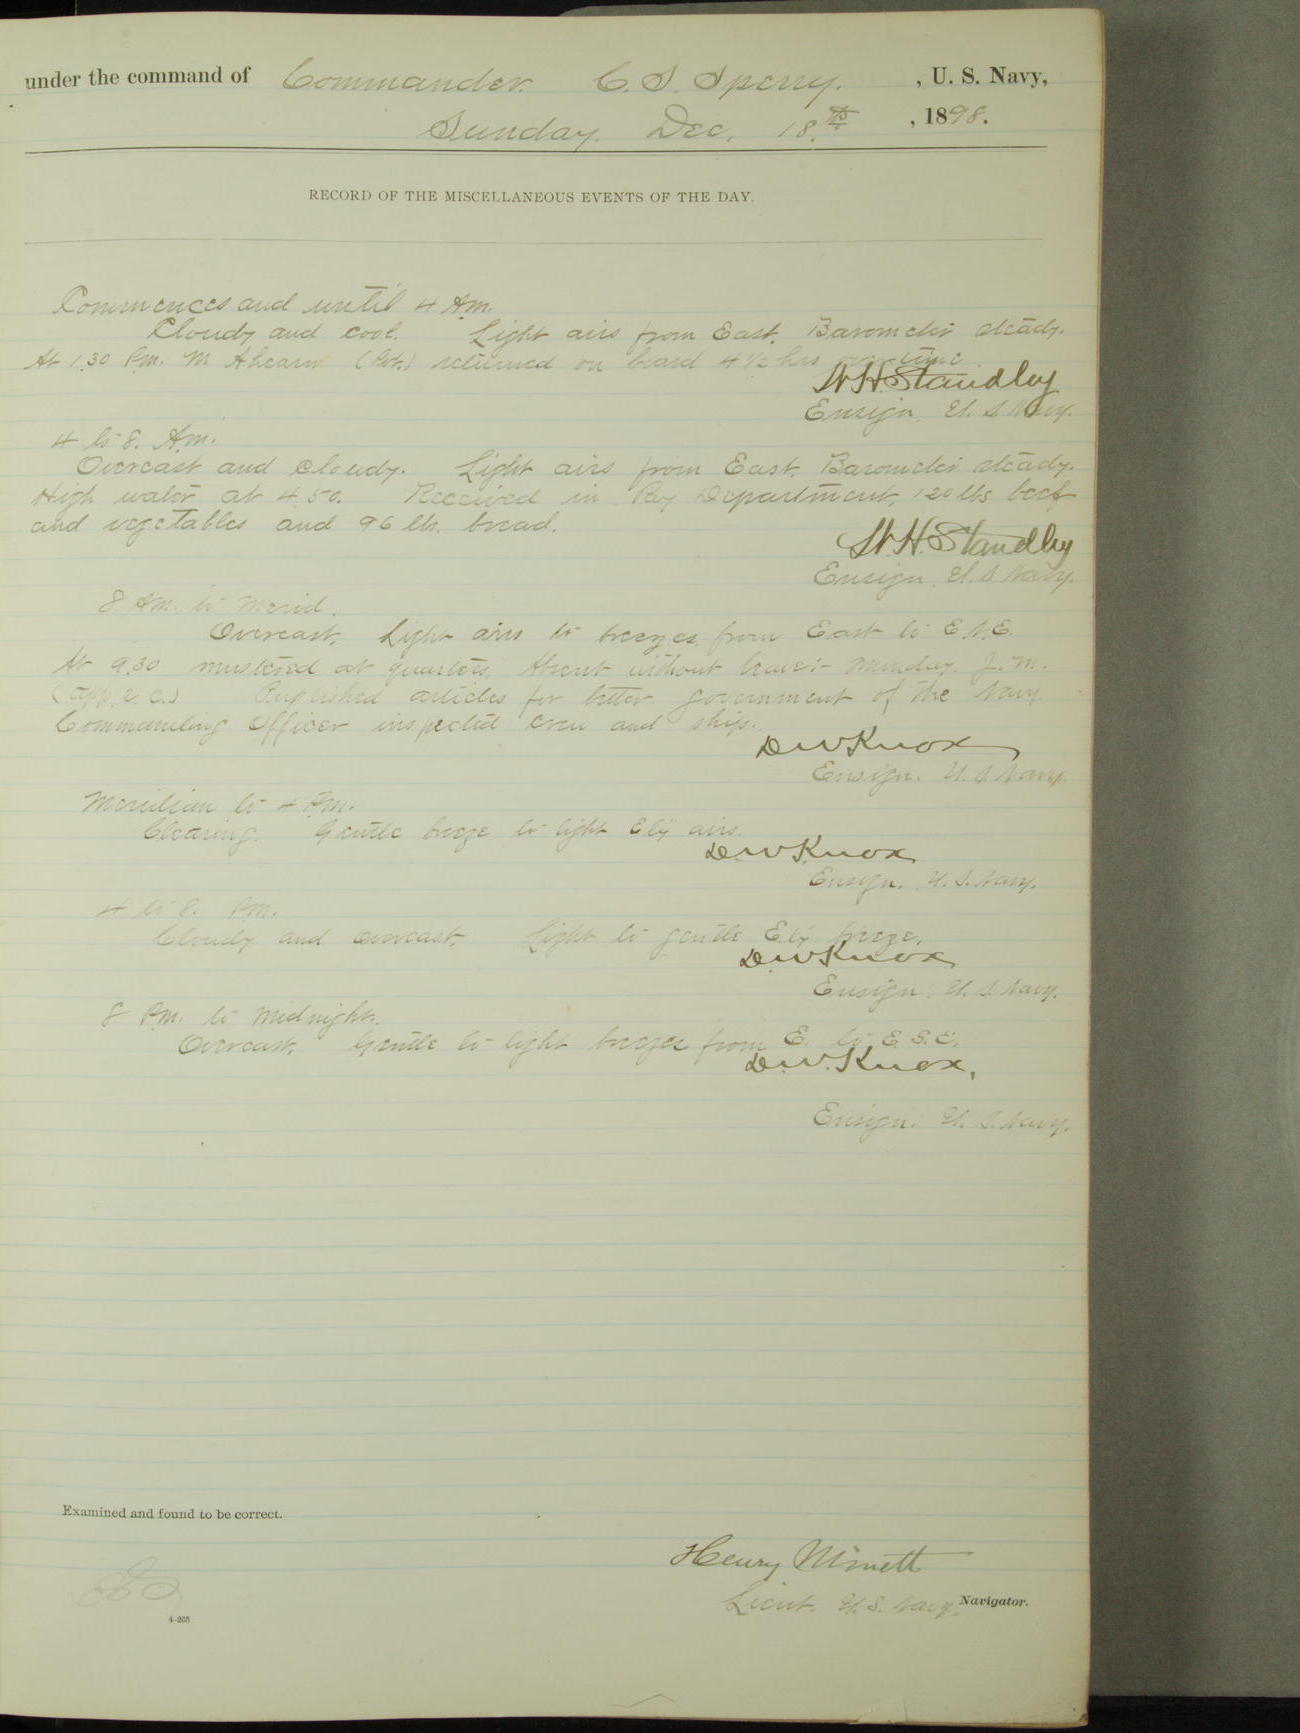 under the command of Commander C. S. Sperry. , U. S. Navy,
Sunday. Dec. 18th , 1898.
RECORD OF THE MISCELLANEOUS EVENTS OF THE DAY.
Commences and until 4 A.m.
Cloudy and cool. Light airs from East. Barometer steady.
At 1.30 P.m. M Ahearn returned on board 4½ hrs over time
W.H. Standley
Ensign, U. S. Navy.
4 to 8. A.m.
Overcast and cloudy. Light airs from East. Barometer steady.
High water at 4.50. Received in Pay Department, 120 lbs beef
and vegetables and 96 lbs. bread.
W.H. Standley
Ensign, U. S. Navy.
8 A.m. to Merid.
Overcast. Light airs to breezes from East to E.N.E.
At 9.30 mustered at quarters. Absent without leave:- Munday, J. M.
Published articles for better government of the Navy.
Commanding Officer inspected crew and ship.
D W Knox
Ensign. U. S. Navy.
Meridian to 4 P.m.
Clearing. Gentle breeze to light Ely airs.
D. W Knox
Ensign. U. S. Navy.
4 to 8. P.m.
Cloudy and overcast. Light to gentle Ely breeze.
D. W Knox
Ensign. U. S. Navy.
8 P.m. to Midnight.
Overcast. Gentle to light breezes from E. to E.S.E.
D. W. Knox.
Ensign. U. S. Navy.
Examined and found to be correct.
Henry Minett
Lieut. U. S. Navy. Navigator.
4-265